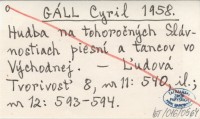 GÁLL Cyril 1958.
Hudba na tohoročných Sláv-
nostiach piesní a tancov vo
Východnej. – Ľudová
Tvorivosť 8, nr 11: 540, il.;
nr 12: 593-594.